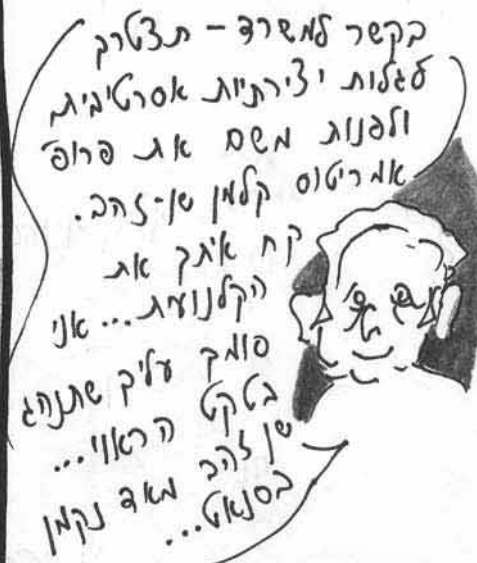 בקשר למשרד - תצטרך
לגלות יצירתיות אסרטיבית
ולפנות משם את פרופ'
אמריטוס קלמן שן-זהב.
קח איתך את
הקלנועית... אני
סומך עליך שתנהג
בטקט הראוי...
שן זהב מאד נקמן
בסנאט...